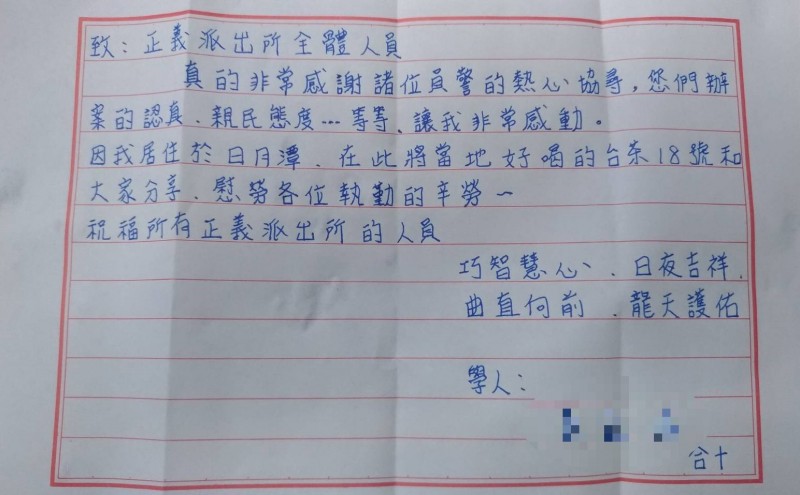 致：正義派出所全體人員
真的非常感謝諸位員警的熱心協尋，您們辦
案的認真、親民態度…等等、讓我非常感動。
因我居住於日月潭、在此將當地好喝的台茶18號和
大家分享、慰勞各位執勤的辛勞～
祝福所有正義派出所的人員
巧智慧心、日夜吉祥、
曲直向前、龍天護佑
學人：
合十